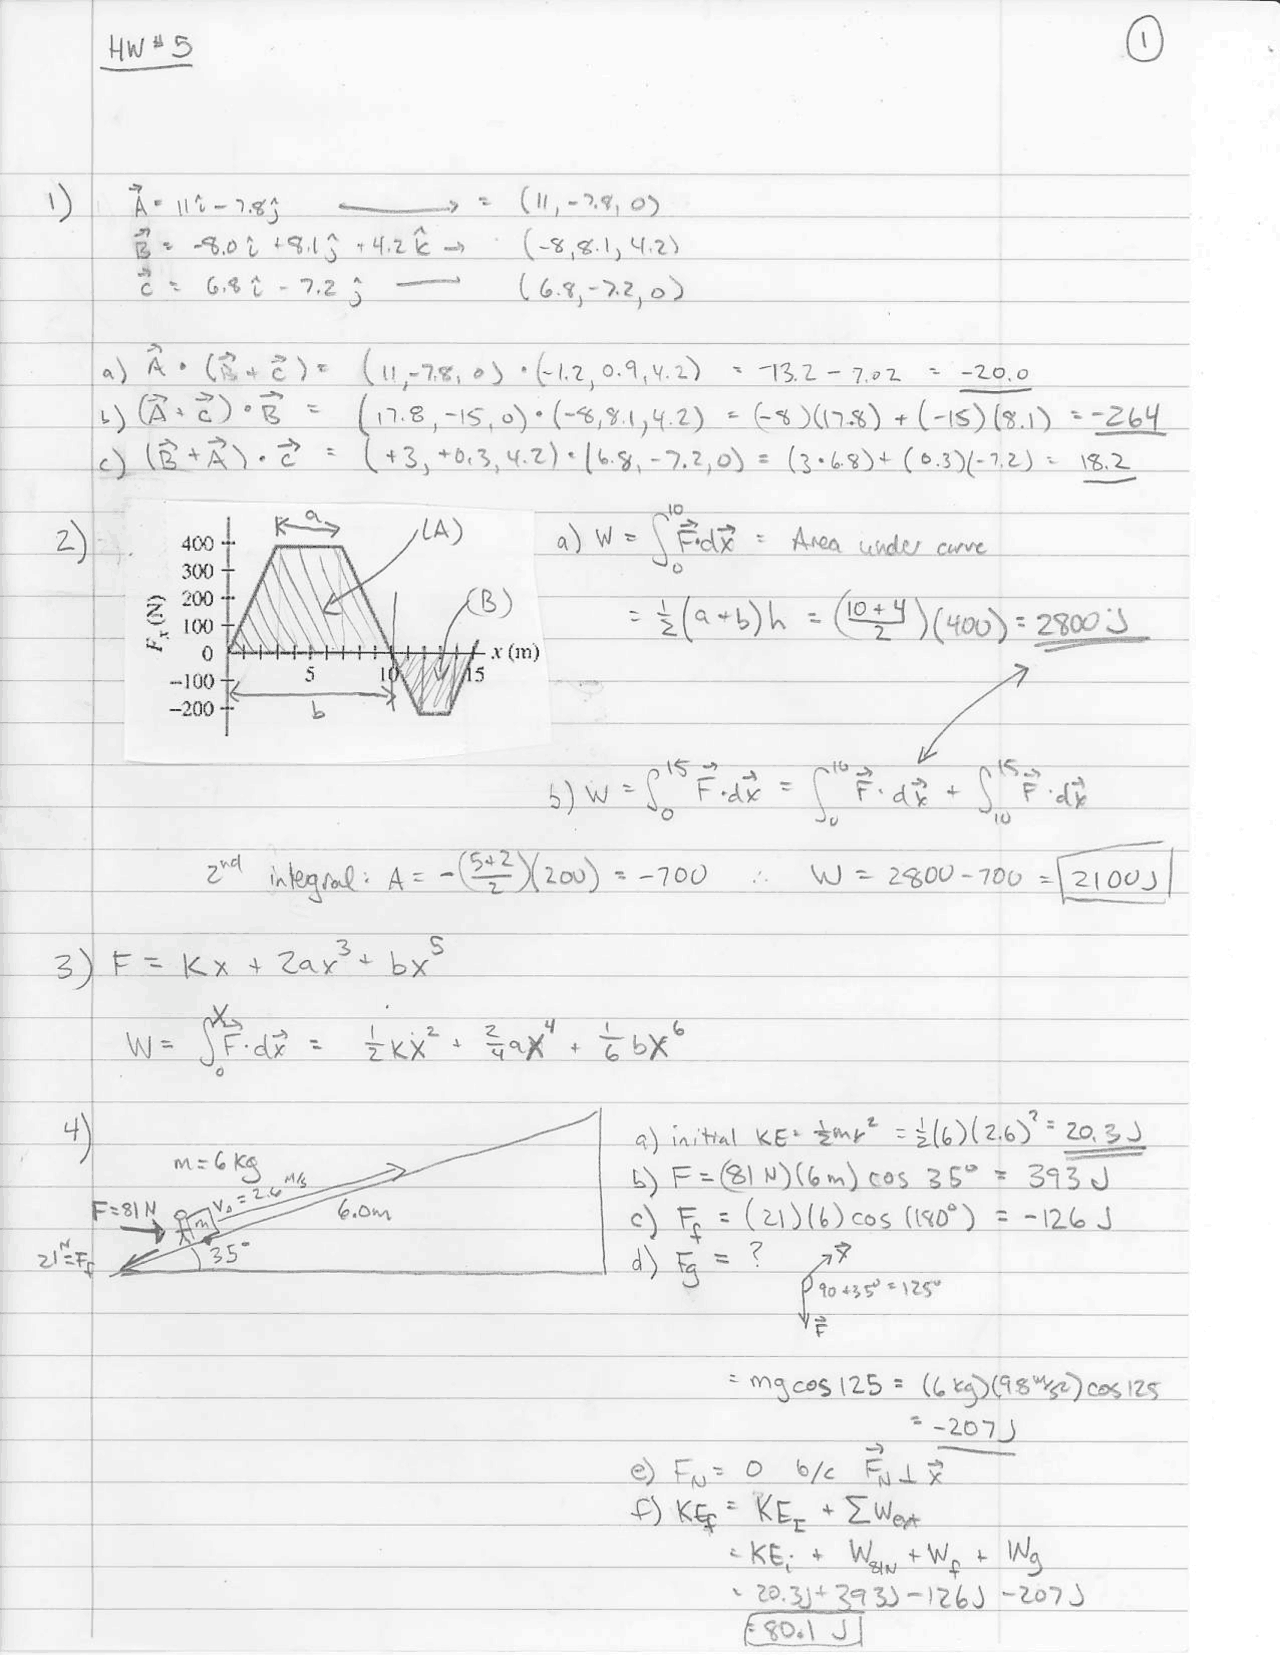 HW # 5
1
1) A⃗ = 11î - 7.8ĵ ⟶ = (11, -7.8, 0)
B⃗ = -8.0î + 8.1ĵ + 4.2k̂ → (-8, 8.1, 4.2)
C⃗ = 6.8î - 7.2ĵ — (6.8, -7.2, 0)
a) A⃗ · (B⃗ + C⃗) = (11, -7.8, 0) · (-1.2, 0.9, 4.2) = -13.2 - 7.02 = -20.0
b) (A⃗ + C⃗) · B⃗ = (17.8, -15, 0) · (-8, 8.1, 4.2) = (-8)(17.8) + (-15)(8.1) = -264
c) (B⃗ + A⃗) · C⃗ = (+3, +0.3, 4.2) · (6.8, -7.2, 0) = (3·6.8) + (0.3)(-7.2) = 18.2
2)
a
(A)
(B)
400
300
200
100
0
-100
-200
Fx (N)
5
10
15
x (m)
b
a) W = ∫₀¹⁰ F⃗·dx⃗ = Area under curve
= ½(a+b)h = ((10+4)/2)(400) = 2800 J
b) W = ∫₀¹⁵ F⃗·dx⃗ = ∫₀¹⁰ F⃗·dx⃗ + ∫₁₀¹⁵ F⃗·dx⃗
2nd integral: A = -((5+2)/2)(200) = -700 ∴ W = 2800 - 700 = 2100 J
3) F = Kx + 2ax³ + bx⁵
W = ∫₀ˣ F⃗·dx⃗ = ½kx² + 2/4 ax⁴ + 1/6 bx⁶
4)
m = 6 kg
F = 81 N
m
V₀ = 2.6 m/s
6.0m
21 N = Ff
35°
a) initial KE = ½mv² = ½(6)(2.6)² = 20.3 J
b) F = (81 N)(6m) cos 35° = 393 J
c) Ff = (21)(6) cos (180°) = -126 J
d) Fg = ?
x⃗
90 + 35° = 125°
F⃗
= mg cos 125 = (6 kg)(9.8 m/s²) cos 125
= -207 J
e) FN = 0 b/c F⃗N ⊥ x⃗
f) KEf = KEI + ΣWext
= KEi + W81N + Wf + Wg
= 20.3J + 393J - 126J - 207J
= 80.1 J